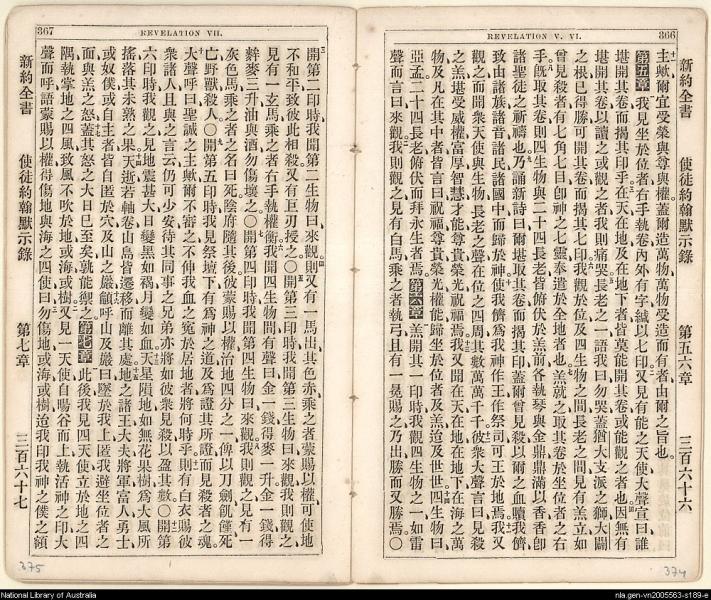 REVELATION V. VI.
366
新約全書
使徒約翰默示錄
第五六章
三百六十六
主歟爾宜受榮與尊與權蓋爾造萬物萬物受造而有者由爾之旨也
第五章 我見坐於位者右手執卷內外有字緘以七印又見有能之天使大聲宣曰誰
堪開其卷而揭其印乎在天在地及在地下者皆莫能開其卷或能觀之者也因無有
堪開其卷以讀之或觀之者我則痛哭長老之一語我曰勿哭蓋猶大支派之獅大闢
之根已得勝可開其卷而揭其七印我觀於位及四生物之間長老之間見有羔立如
曾見殺者有七角七目卽神之七靈奉遣於全地者也羔就之取其卷於坐位者之右
手旣取其卷則四生物與二十四長老皆俯伏於羔前各執琴與金鼎鼎滿以香香卽
諸聖徒之祈禱也乃誦新詩曰爾堪取其卷而揭其印蓋爾曾見殺以爾之血贖我儕
致由諸族諸音諸民諸國中而歸於神使我儕爲我神作王作祭司可王於地焉我又
觀之而聞衆天使與生物長老之聲在位之四周其數萬萬千千彼衆大聲言曰見殺
之羔堪受威權富厚智慧才能尊貴榮光祝福焉我又聞在天在地在地下在海之萬
物及凡在其中者皆言曰祝福尊貴榮光權能歸坐於位者及羔迨及世世四生物曰
亞孟二十四長老俯伏而拜永生者焉第六章 羔開其一印時我觀四生物之一如雷
聲而言曰來觀我則觀之見有白馬乘之者執弓且有一冕賜之乃出勝而又勝焉〇
374
367
REVELATION VII.
開第二印時我聞第二生物曰來觀則又有一馬出其色赤乘之者蒙賜以權可使地
不和平致彼此相殺又有巨刃授之〇開第三印時我聞第三生物曰來觀我則觀之
見有一玄馬乘之者右手執權衡我聞四生物間有聲曰金一錢得麥一升金一錢得
麰麥三升油與酒勿傷壞之〇開第四印時我聞第四生物曰來觀我則觀之見有一
灰色馬乘之者之名曰死陰府隨其後彼蒙賜以權治地四分之一俾以刀劍飢饉死
亡野獸殺人〇開第五印時我見祭壇下有爲神之道及爲證其所證而見殺者之魂
大聲呼曰聖誠之主歟爾不審之不伸我血之寃於居地者將何時乎則有白衣賜彼
衆諸人且與之言云仍可少安待其同事之兄弟亦將如彼衆見殺以盈其數〇開第
六印時我觀之見地震甚大日變黑如褐月變如血天星隕地如無花果樹爲大風所
搖落其未熟之果天逝若軸卷山島皆遷移而離其處地之諸王大夫將軍富人勇士
或奴僕或自主者皆自匿於穴及山之巖籲呼山及巖曰墜於我上匿我避坐位者之
面與羔之怒蓋其怒之大日巳至矣孰能禦之第七章 此後我見四天使立於地之四
隅執掌地之四風致風不吹於地或海或樹又見一天使自暘谷而上執活神之印大
聲而呼語蒙賜以權得傷地與海之四使曰勿傷地或海或樹迨我印我神之僕之額
新約全書
使徒約翰默示錄
第七章
三百六十七
375
National Library of Australia
nla.gen-vn2005563-s189-e